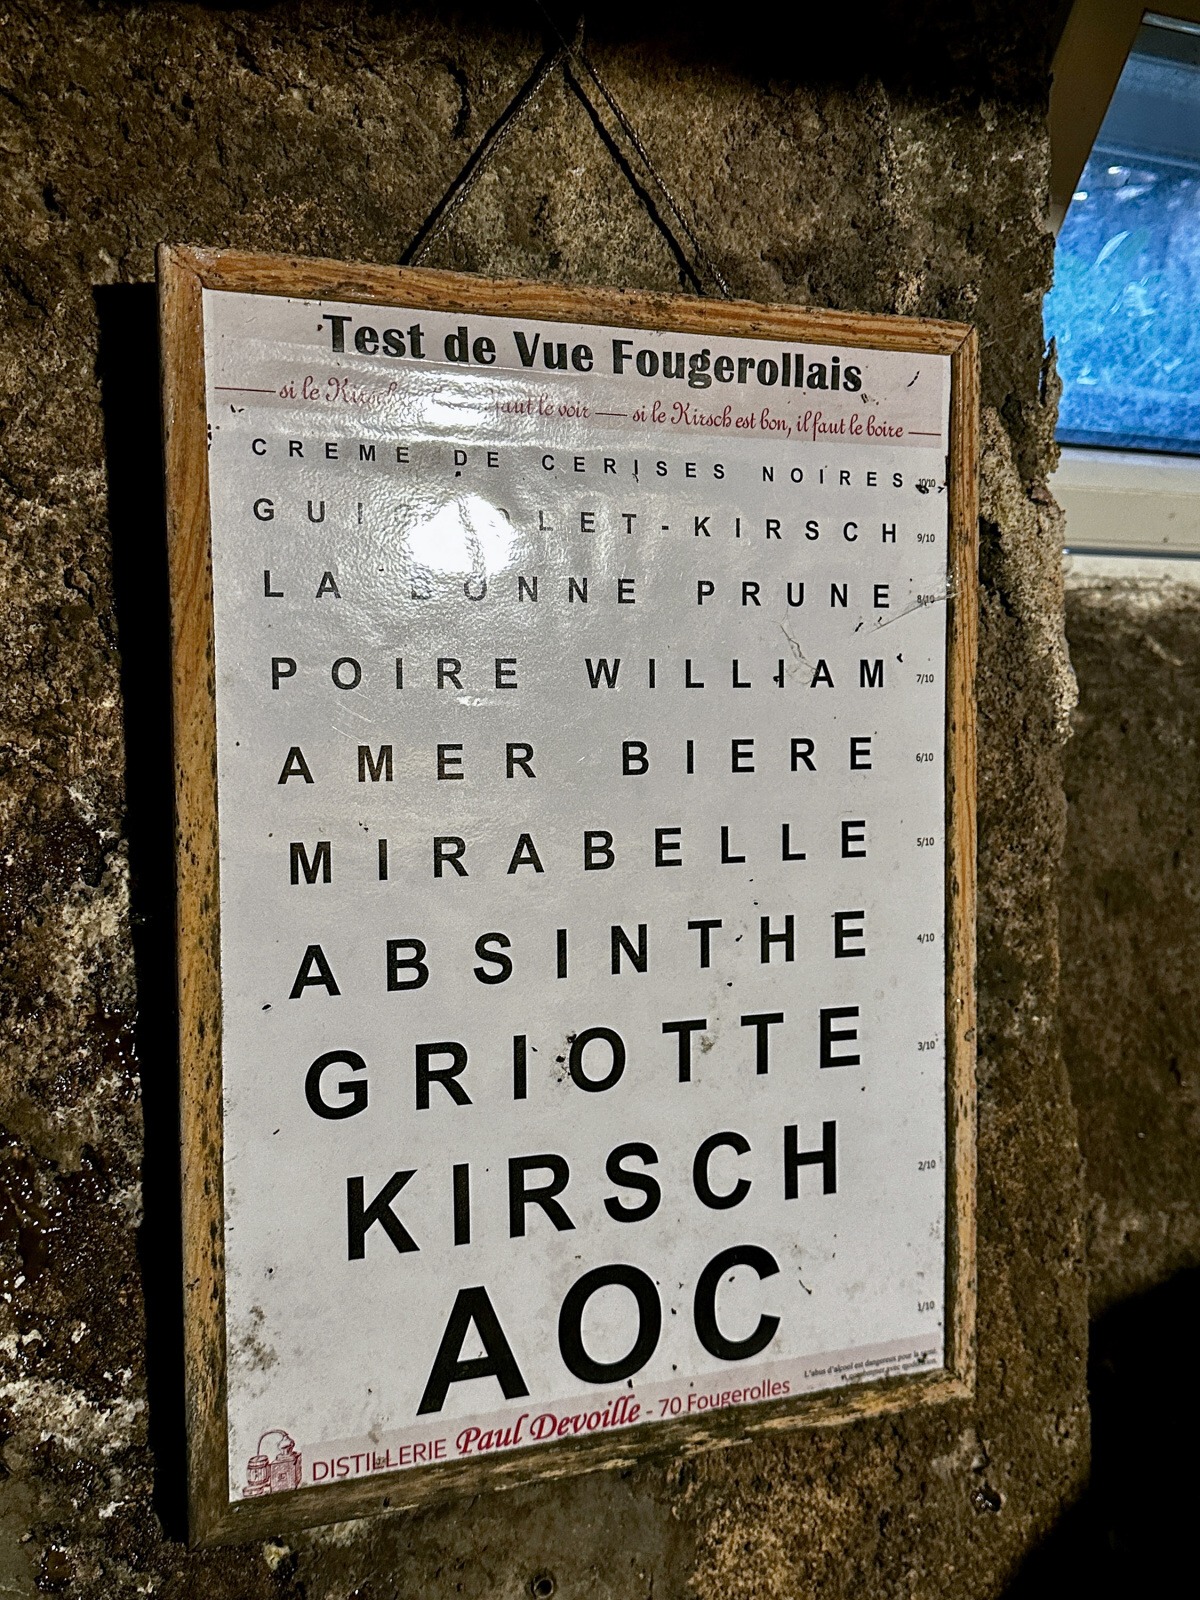 Test de Vue Fougerollais
si le Kirsch faut le voir — si le Kirsch est bon, il faut le boire
CREME DE CERISES NOIRES 10/10
GUIGNOLET-KIRSCH 9/10
LA BONNE PRUNE 8/10
POIRE WILLIAM 7/10
AMER BIERE 6/10
MIRABELLE 5/10
ABSINTHE 4/10
GRIOTTE 3/10
KIRSCH 2/10
AOC 1/10
L'abus d'alcool est dangereux pour la santé,
à consommer avec modération.
DISTILLERIE Paul Devoille - 70 Fougerolles